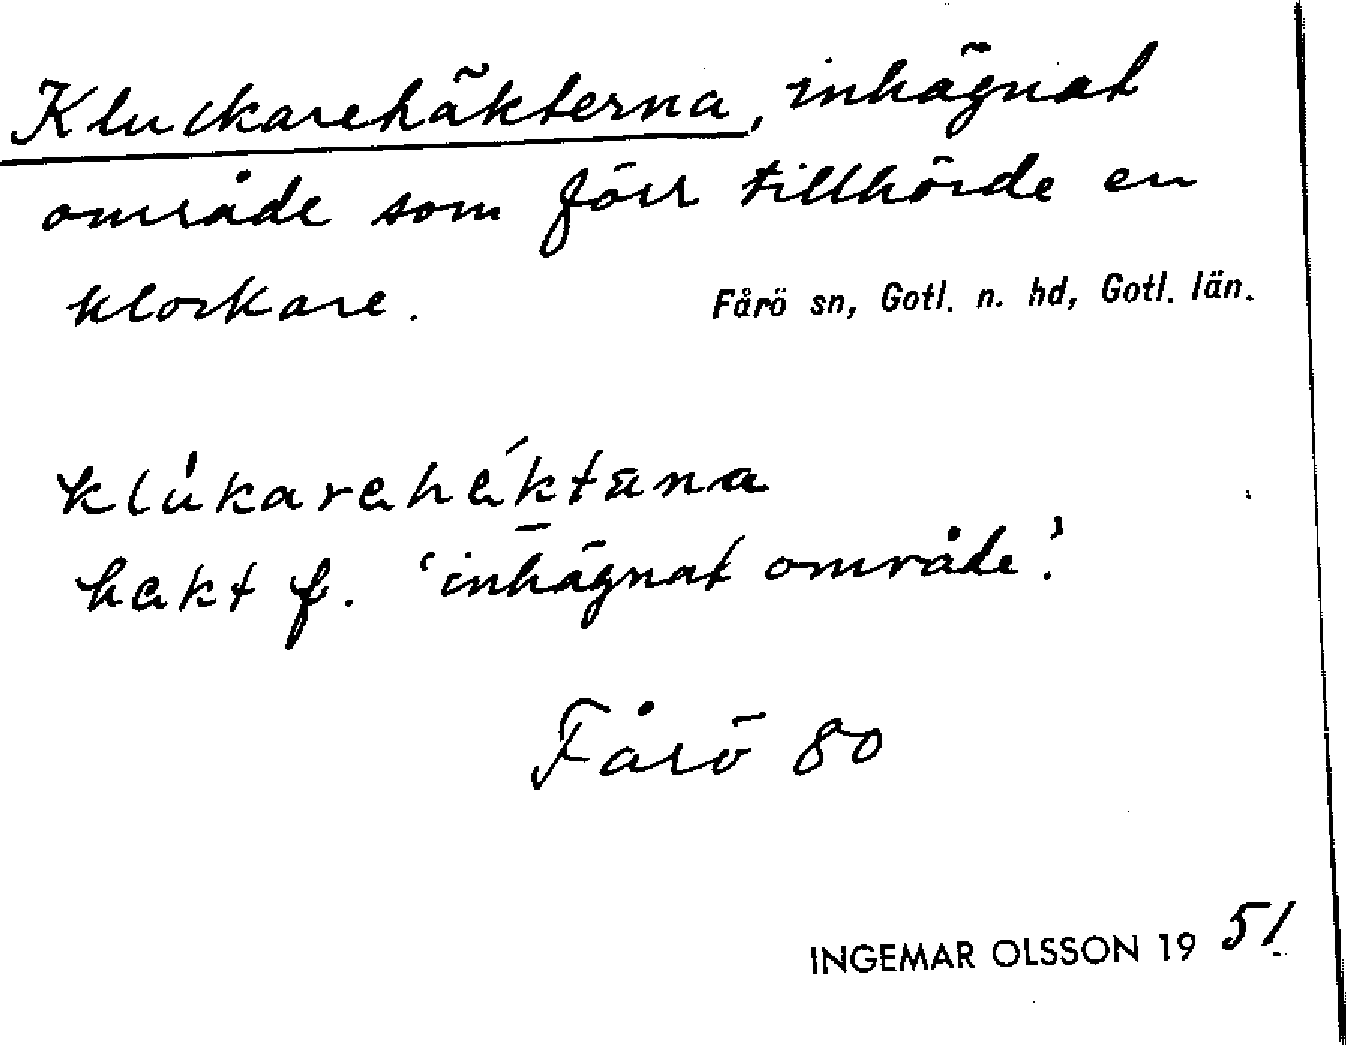 Kluckarehäkterna, inhägnat
område som förr tillhörde en
klockare.
Fårö sn, Gotl. n. hd, Gotl. län.
klúkarehéktana
hekt f. 'inhägnat område'.
Fårö 80
INGEMAR OLSSON 1951